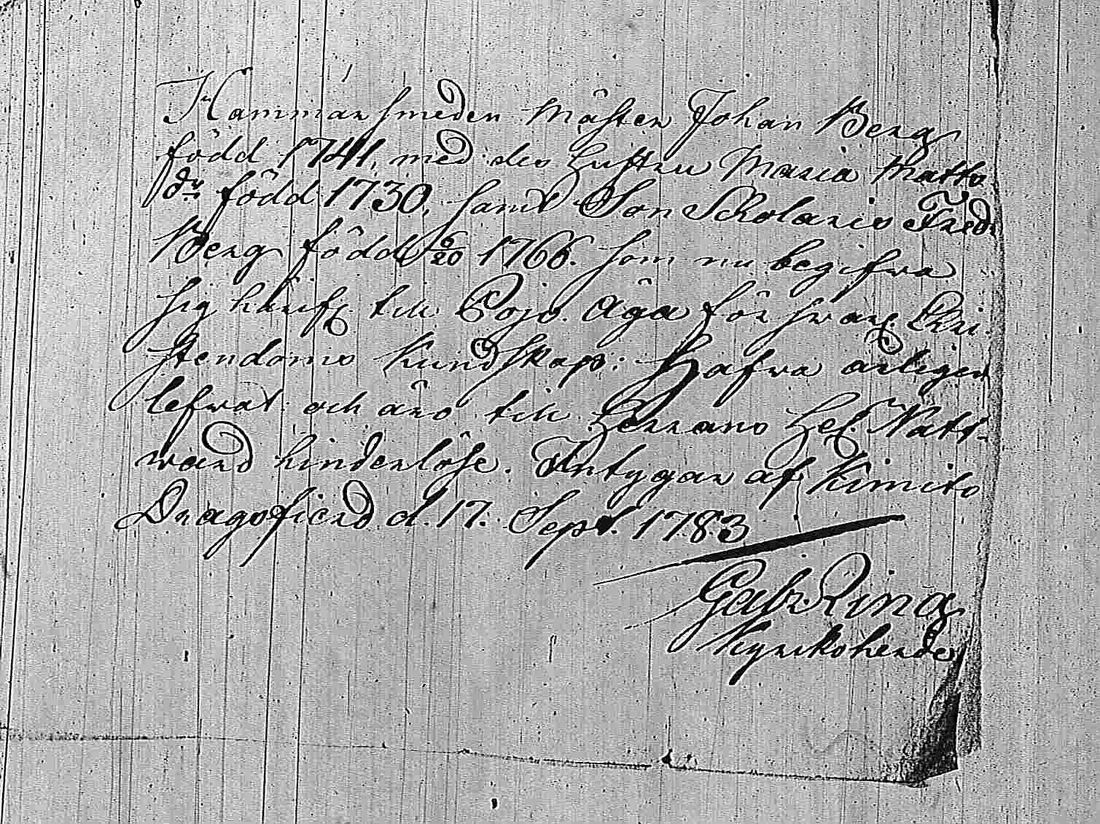 Hammarsmeden Mäster Johan Berg
född 1741, med des hustru Maria Matts
dr. född 1730, samt Son Scholaris Fred.
Berg född 6/20 1766. som nu begifva
sig härifr. till Pojo. äga försvarl. Chri-
stendoms Kundskap: Hafva ärligen
lefvat och äro till Herrans Hel. Natt-
ward hinderlöse. Intygar af Kimito
Dragsfierd d. 17. Sept. 1783
Gab. Ring
Kyrckoherde